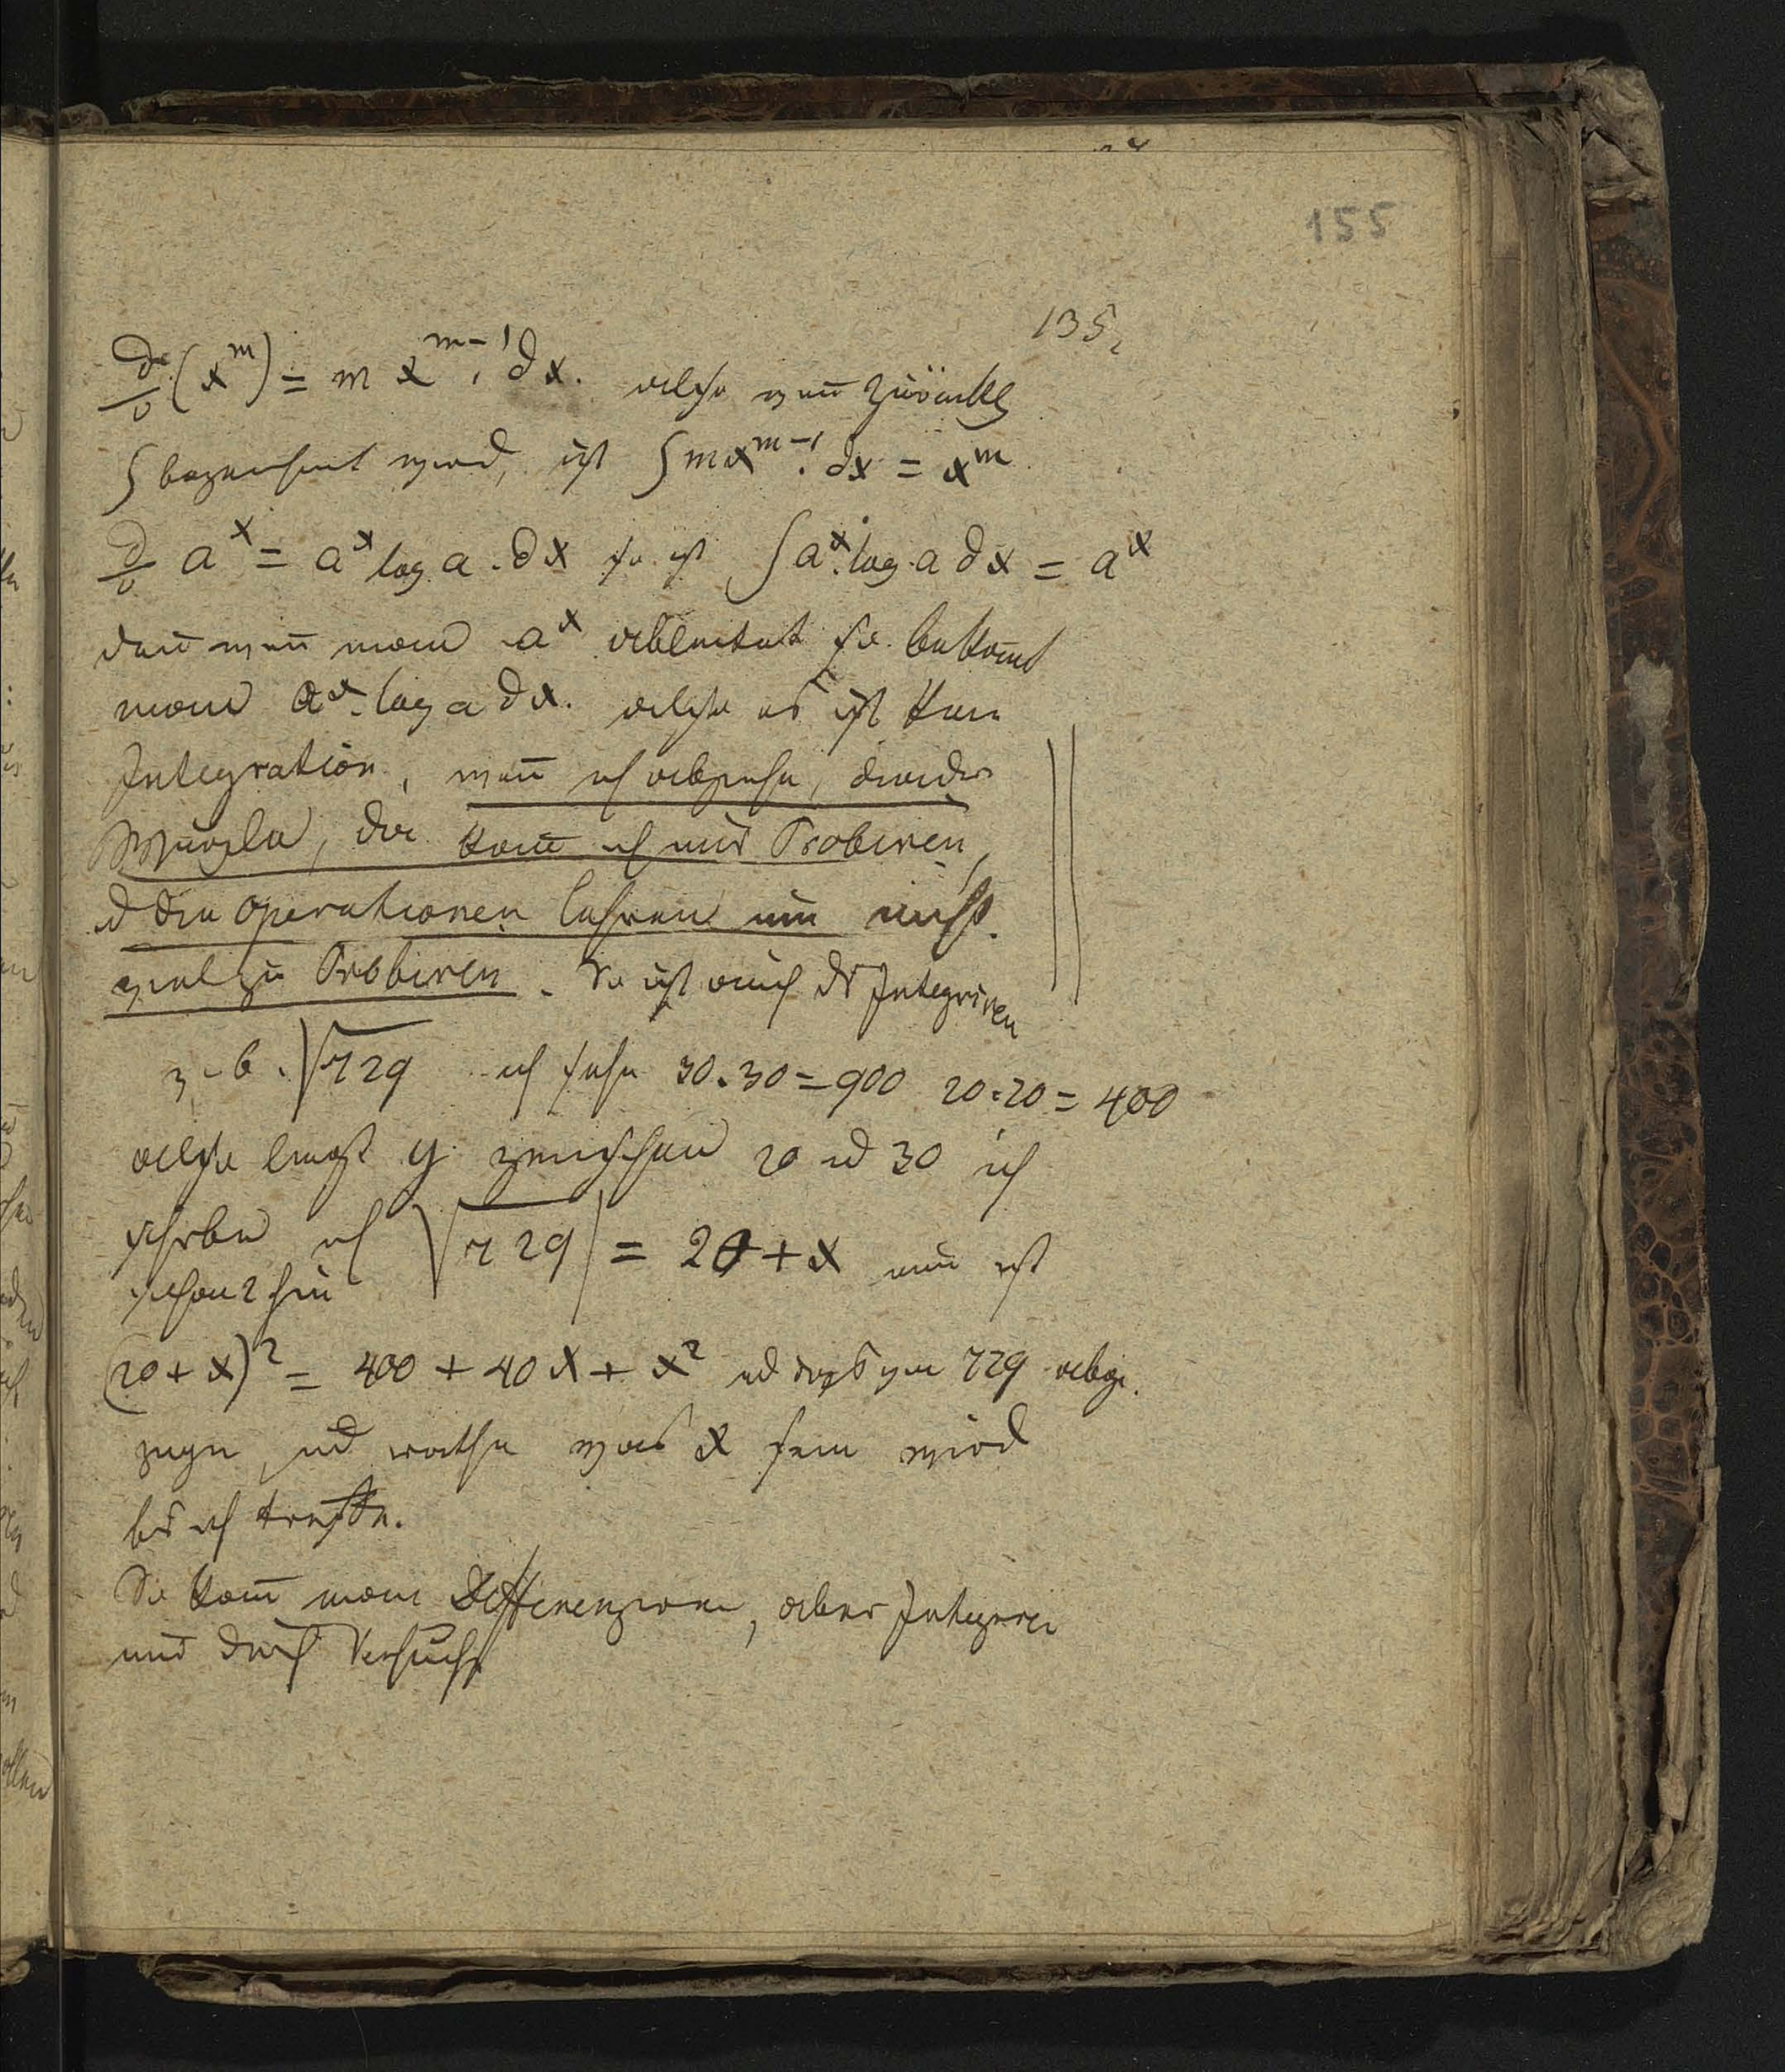 155
135
d/0 (x^m) = m x^{m-1} . dx. also wen zurück
∫ bezeichnet wird, ist ∫ m x^{m-1} . dx = x^m
d/0 a^x = a^x log a . dx so ist ∫ a^x . log . a dx = a^x
den wen̄ man a^x ableitet so bekom̄t
man a^x . log a dx. also es ist kein
Integration, wen̄ ich abziehe, dividir
Wurzeln, da kan̄ ich nur Probiren,
d die operationen lehren nur nicht
viel zu Probiren. So ist auch ds Integriren
z. b. √729 ich sehe 30.30 = 900 20.20 = 400
also liegt y zwischen 20 ud 30 ich
schreibe ich √729 = 20 + x nun ist
(20 + x)² = 400 + 40x + x² ud von 729 abge.
zogen, ud rathe was x sein wird
bis ich treffe.
So kan̄ man Differenziren, aber Integriren
nur durch Versuche